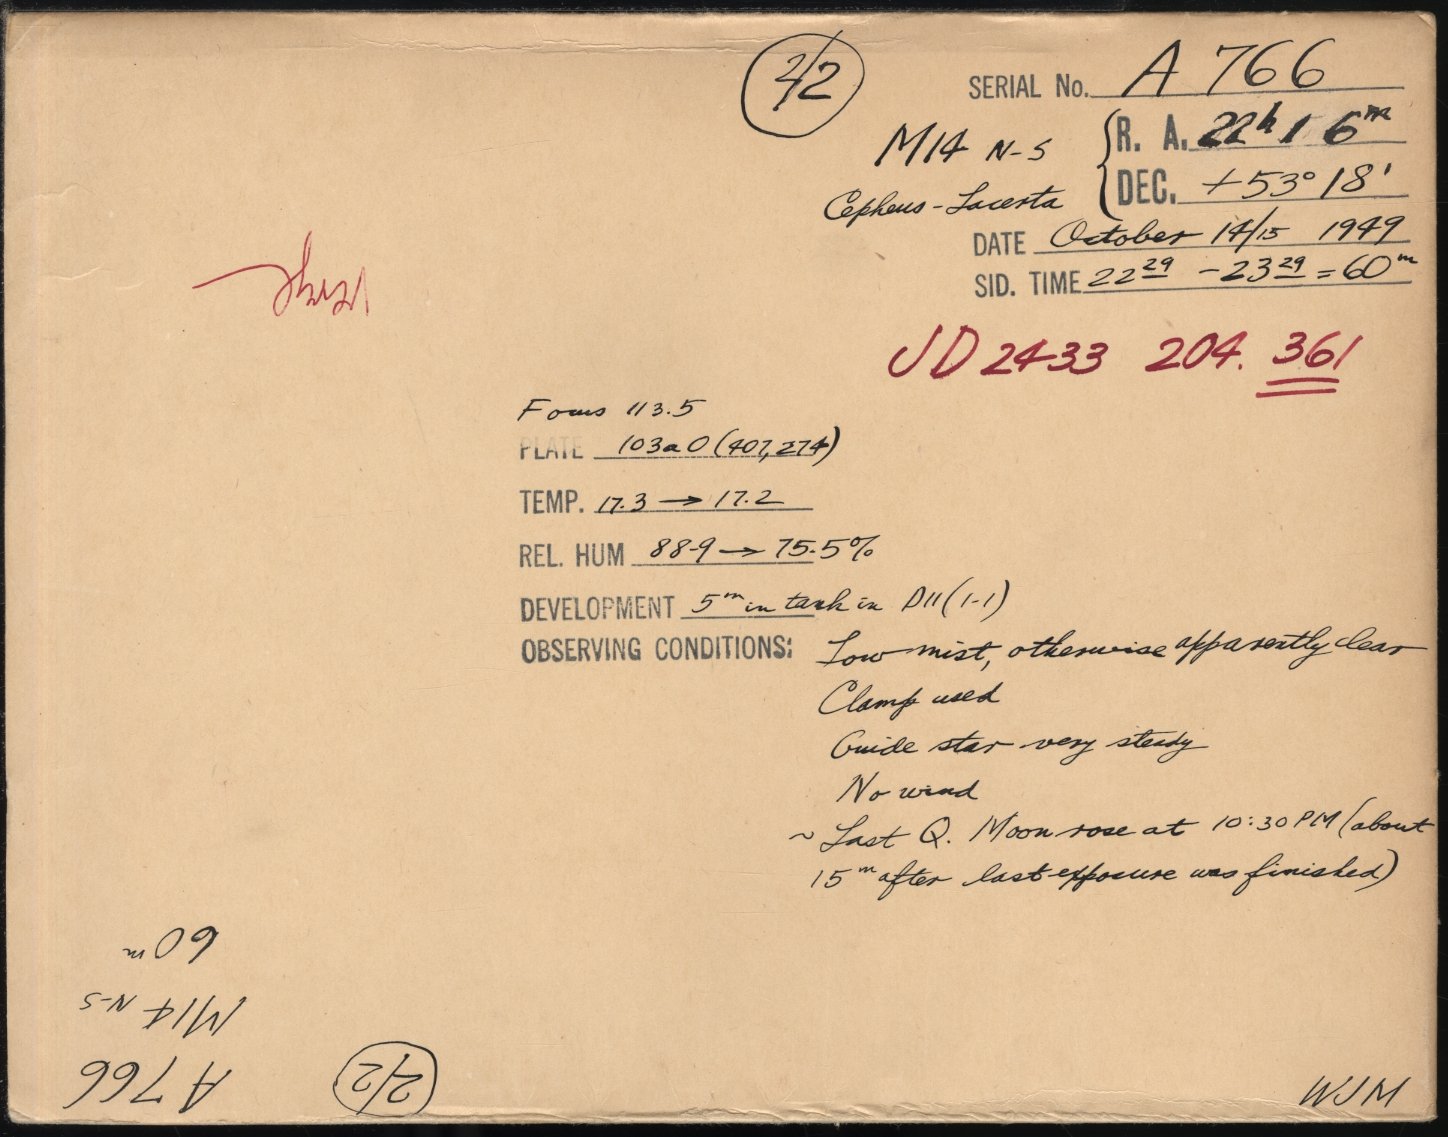 2/2
SERIAL No. A 766
M14 N-S
R. A. 22h 16m
Cepheus - Lacerta
DEC. +53° 18'
DATE October 14/15 1949
SID. TIME 22 29 - 23 29 = 60m
JD 2433 204. 361
Focus 113.5
PLATE 103aO (407,274)
TEMP. 17.3 → 17.2
REL. HUM 88.9 → 75.5%
DEVELOPMENT 5m in tank in D11 (1-1)
OBSERVING CONDITIONS: Low mist, otherwise apparently clear
Clamp used
Guide star very steady
No wind
~ Last Q. Moon rose at 10:30 PM (about
15m after last exposure was finished)
WJM
A766 2/2
M14 N-S
60m